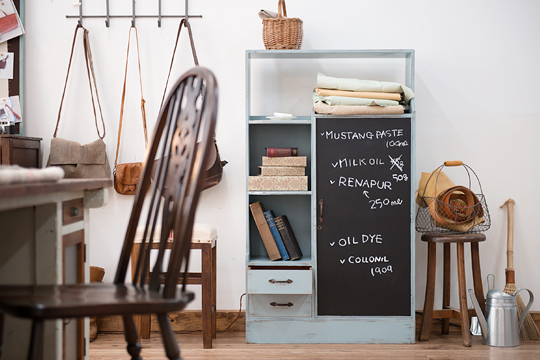 ✓ MUSTANG PASTE
100ml
✓ MILK OIL
50g
✓ RENAPUR
250ml
✓ OIL DYE
✓ COLLONIL
190g